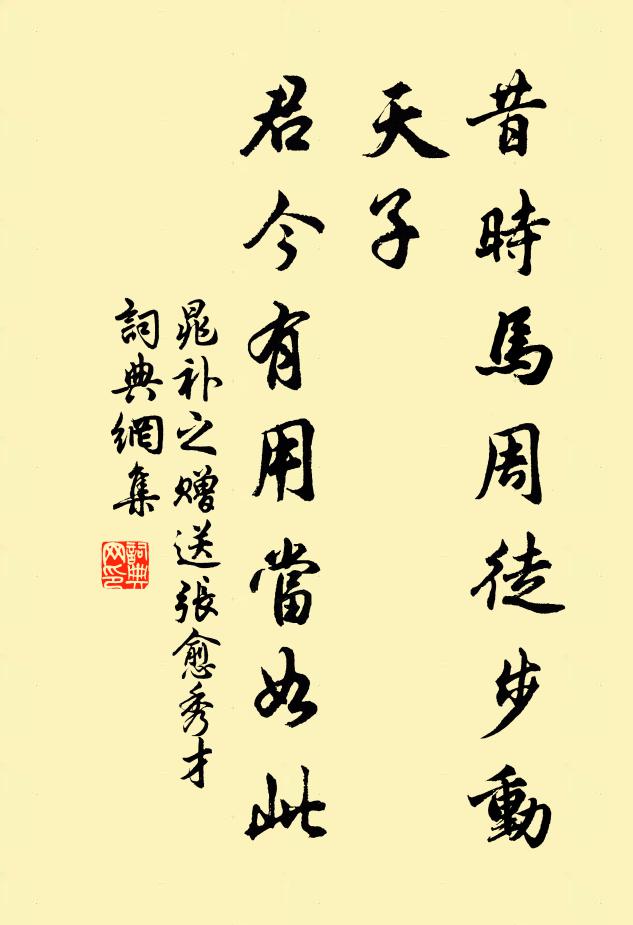 昔時馬周徒步動
天子
君今有用當如此
晁补之赠送張愈秀才
詞典網集
詞典网印